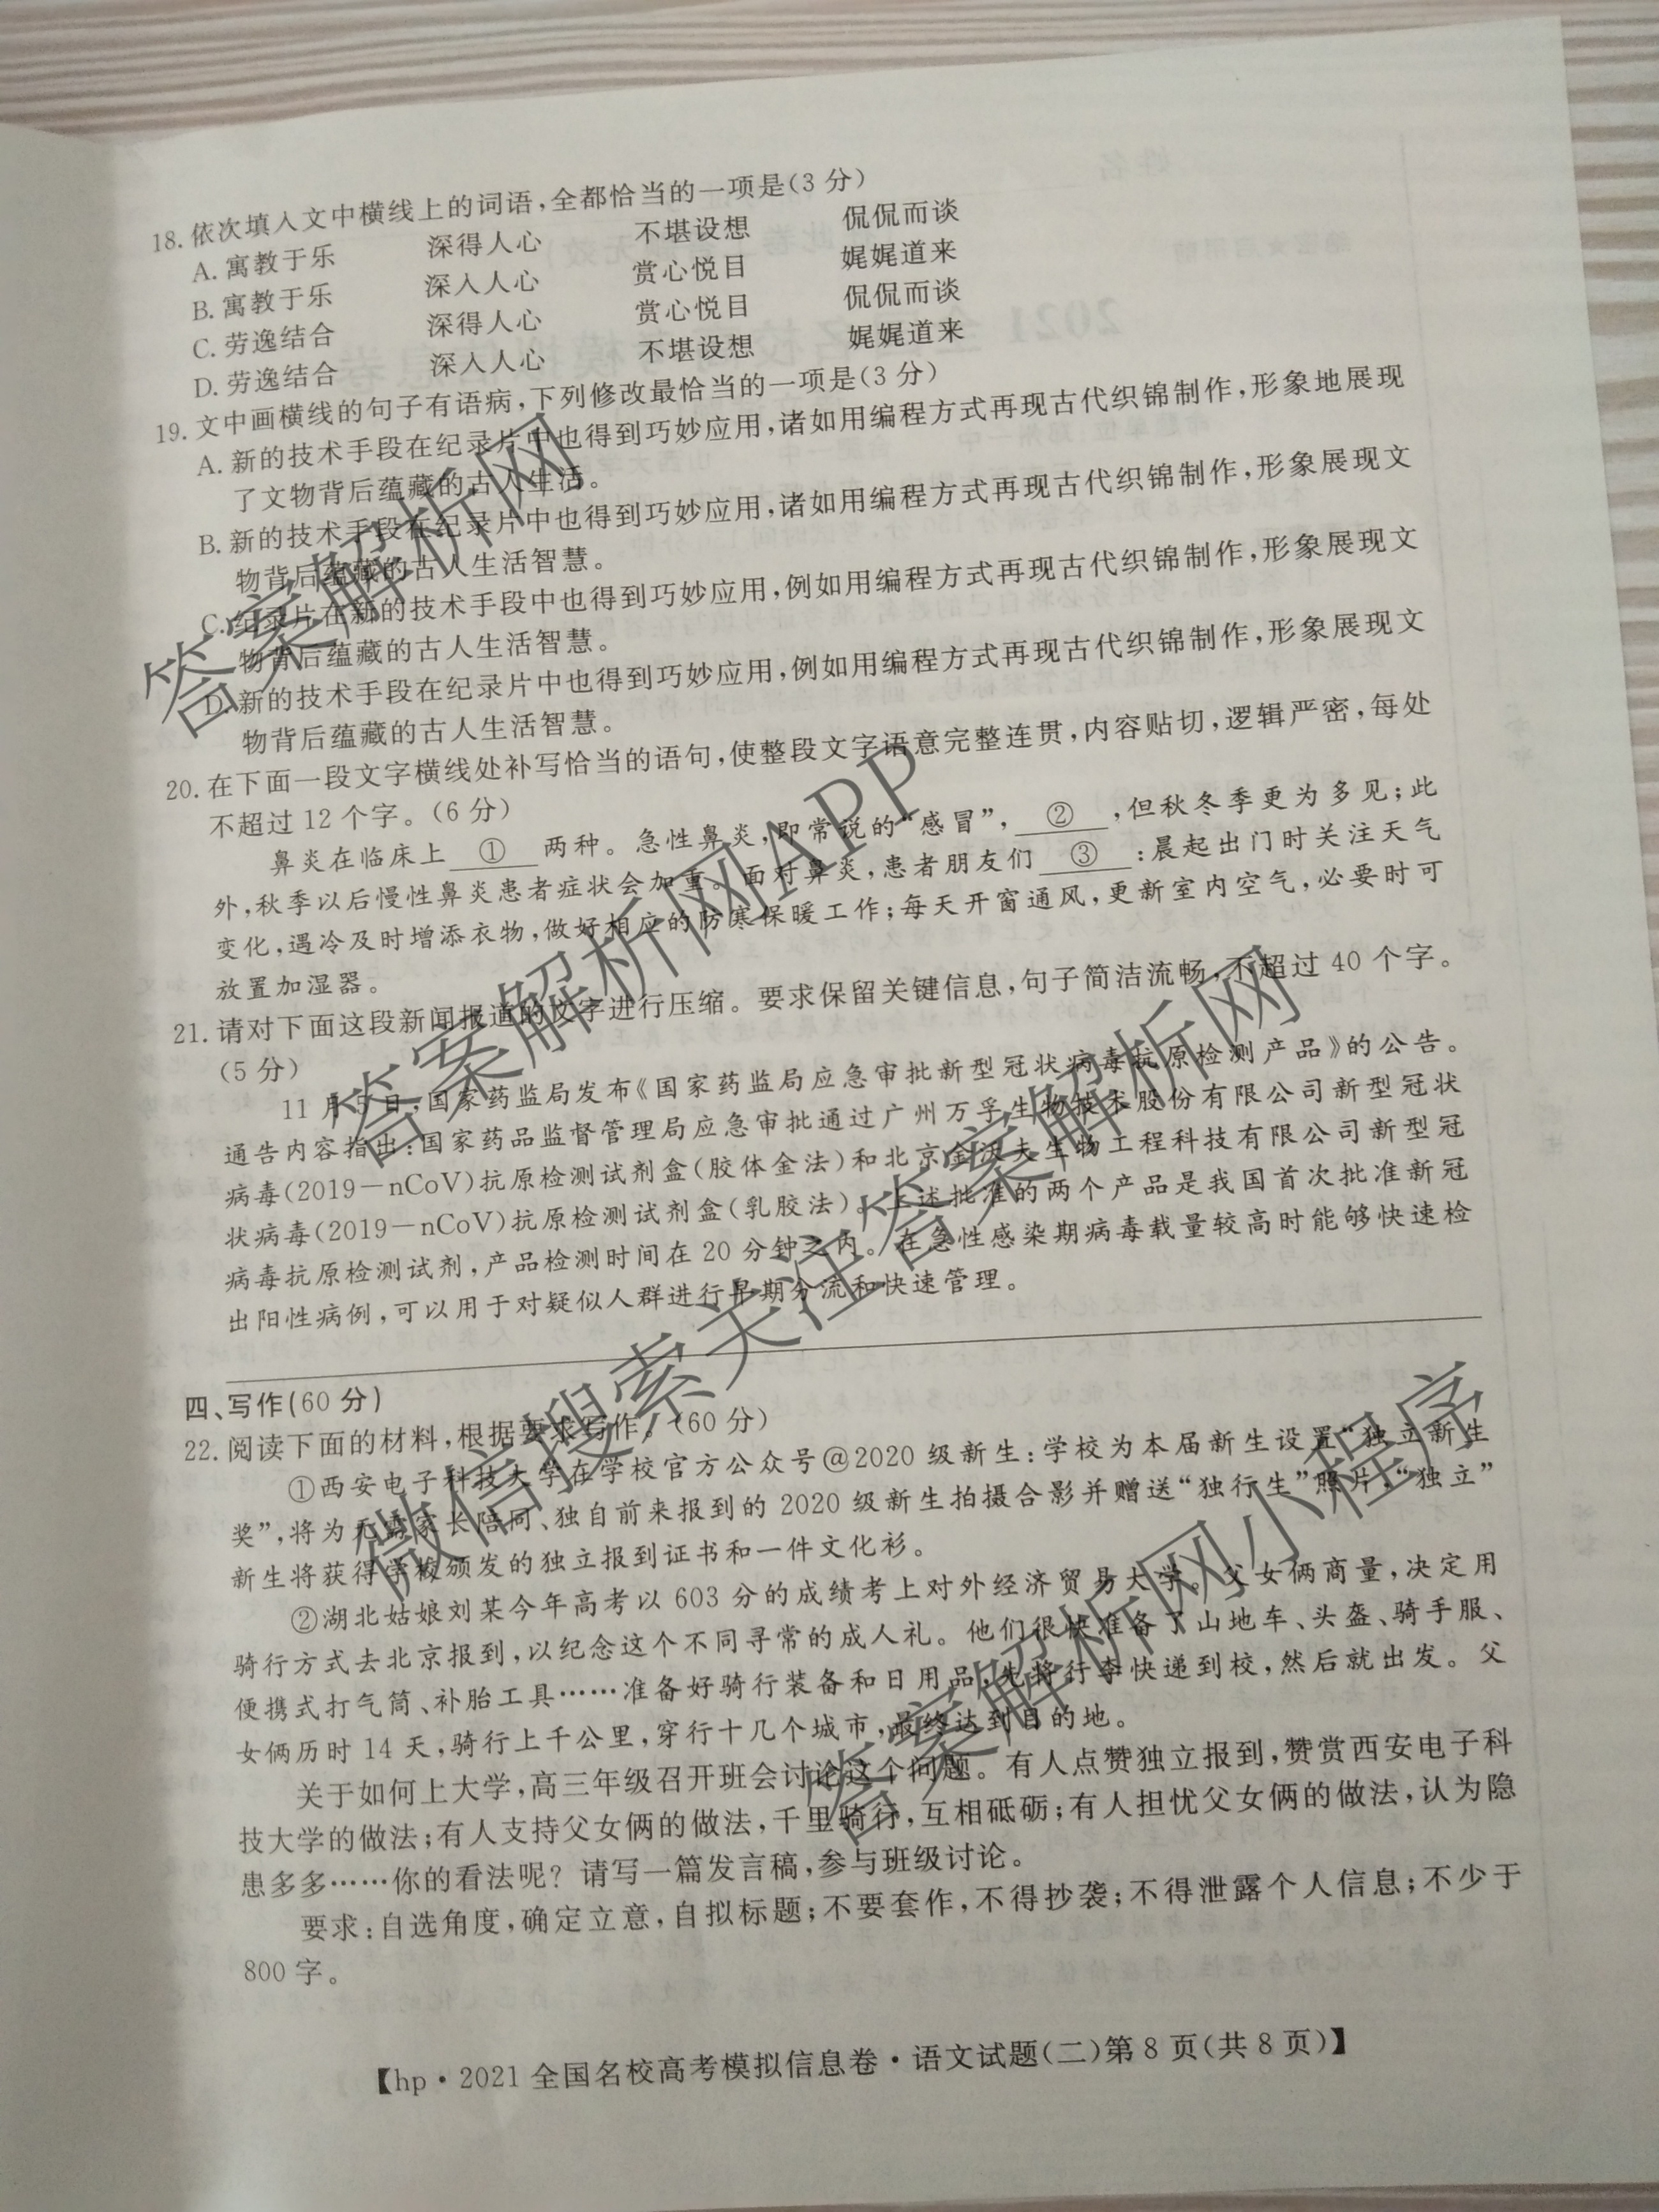 18. 依次填入文中横线上的词语,全都恰当的一项是(3 分)
A. 寓教于乐 深得人心 不堪设想 侃侃而谈
B. 寓教于乐 深入人心 赏心悦目 娓娓道来
C. 劳逸结合 深得人心 赏心悦目 侃侃而谈
D. 劳逸结合 深入人心 不堪设想 娓娓道来
19. 文中画横线的句子有语病,下列修改最恰当的一项是(3 分)
A. 新的技术手段在纪录片中也得到巧妙应用,诸如用编程方式再现古代织锦制作,形象地展现
了文物背后蕴藏的古人生活。
B. 新的技术手段在纪录片中也得到巧妙应用,诸如用编程方式再现古代织锦制作,形象展现文
物背后蕴藏的古人生活智慧。
C. 纪录片在新的技术手段中也得到巧妙应用,例如用编程方式再现古代织锦制作,形象展现文
物背后蕴藏的古人生活智慧。
D. 新的技术手段在纪录片中也得到巧妙应用,例如用编程方式再现古代织锦制作,形象展现文
物背后蕴藏的古人生活智慧。
20. 在下面一段文字横线处补写恰当的语句,使整段文字语意完整连贯,内容贴切,逻辑严密,每处
不超过 12 个字。(6 分)
鼻炎在临床上 ① 两种。急性鼻炎,即常说的“感冒”, ② ,但秋冬季更为多见;此
外,秋季以后慢性鼻炎患者症状会加重。面对鼻炎,患者朋友们 ③ :晨起出门时关注天气
变化,遇冷及时增添衣物,做好相应的防寒保暖工作;每天开窗通风,更新室内空气,必要时可
放置加湿器。
21. 请对下面这段新闻报道的文字进行压缩。要求保留关键信息,句子简洁流畅,不超过 40 个字。
(5 分)
11 月 5 日,国家药监局发布《国家药监局应急审批新型冠状病毒抗原检测产品》的公告。
通告内容指出:国家药品监督管理局应急审批通过广州万孚生物技术股份有限公司新型冠状
病毒(2019－nCoV)抗原检测试剂盒(胶体金法)和北京金沃夫生物工程科技有限公司新型冠
状病毒(2019－nCoV)抗原检测试剂盒(乳胶法)。上述批准的两个产品是我国首次批准新冠
病毒抗原检测试剂,产品检测时间在 20 分钟之内。在急性感染期病毒载量较高时能够快速检
出阳性病例,可以用于对疑似人群进行早期分流和快速管理。
四、写作(60 分)
22. 阅读下面的材料,根据要求写作。(60 分)
①西安电子科技大学在学校官方公众号@2020 级新生:学校为本届新生设置“独立新生
奖”,将为无需家长陪同、独自前来报到的 2020 级新生拍摄合影并赠送“独行生”照片,“独立”
新生将获得学校颁发的独立报到证书和一件文化衫。
②湖北姑娘刘某今年高考以 603 分的成绩考上对外经济贸易大学。父女俩商量,决定用
骑行方式去北京报到,以纪念这个不同寻常的成人礼。他们很快准备了山地车、头盔、骑手服、
便携式打气筒、补胎工具……准备好骑行装备和日用品,先将行李快递到校,然后就出发。父
女俩历时 14 天,骑行上千公里,穿行十几个城市,最终达到目的地。
关于如何上大学,高三年级召开班会讨论这个问题。有人点赞独立报到,赞赏西安电子科
技大学的做法;有人支持父女俩的做法,千里骑行,互相砥砺;有人担忧父女俩的做法,认为隐
患多多……你的看法呢? 请写一篇发言稿,参与班级讨论。
要求:自选角度,确定立意,自拟标题;不要套作,不得抄袭;不得泄露个人信息;不少于
800 字。
【hp·2021 全国名校高考模拟信息卷·语文试题(二)第 8 页(共 8 页)】
答案解析网
答案解析网APP
微信搜索关注答案解析网
答案解析网小程序